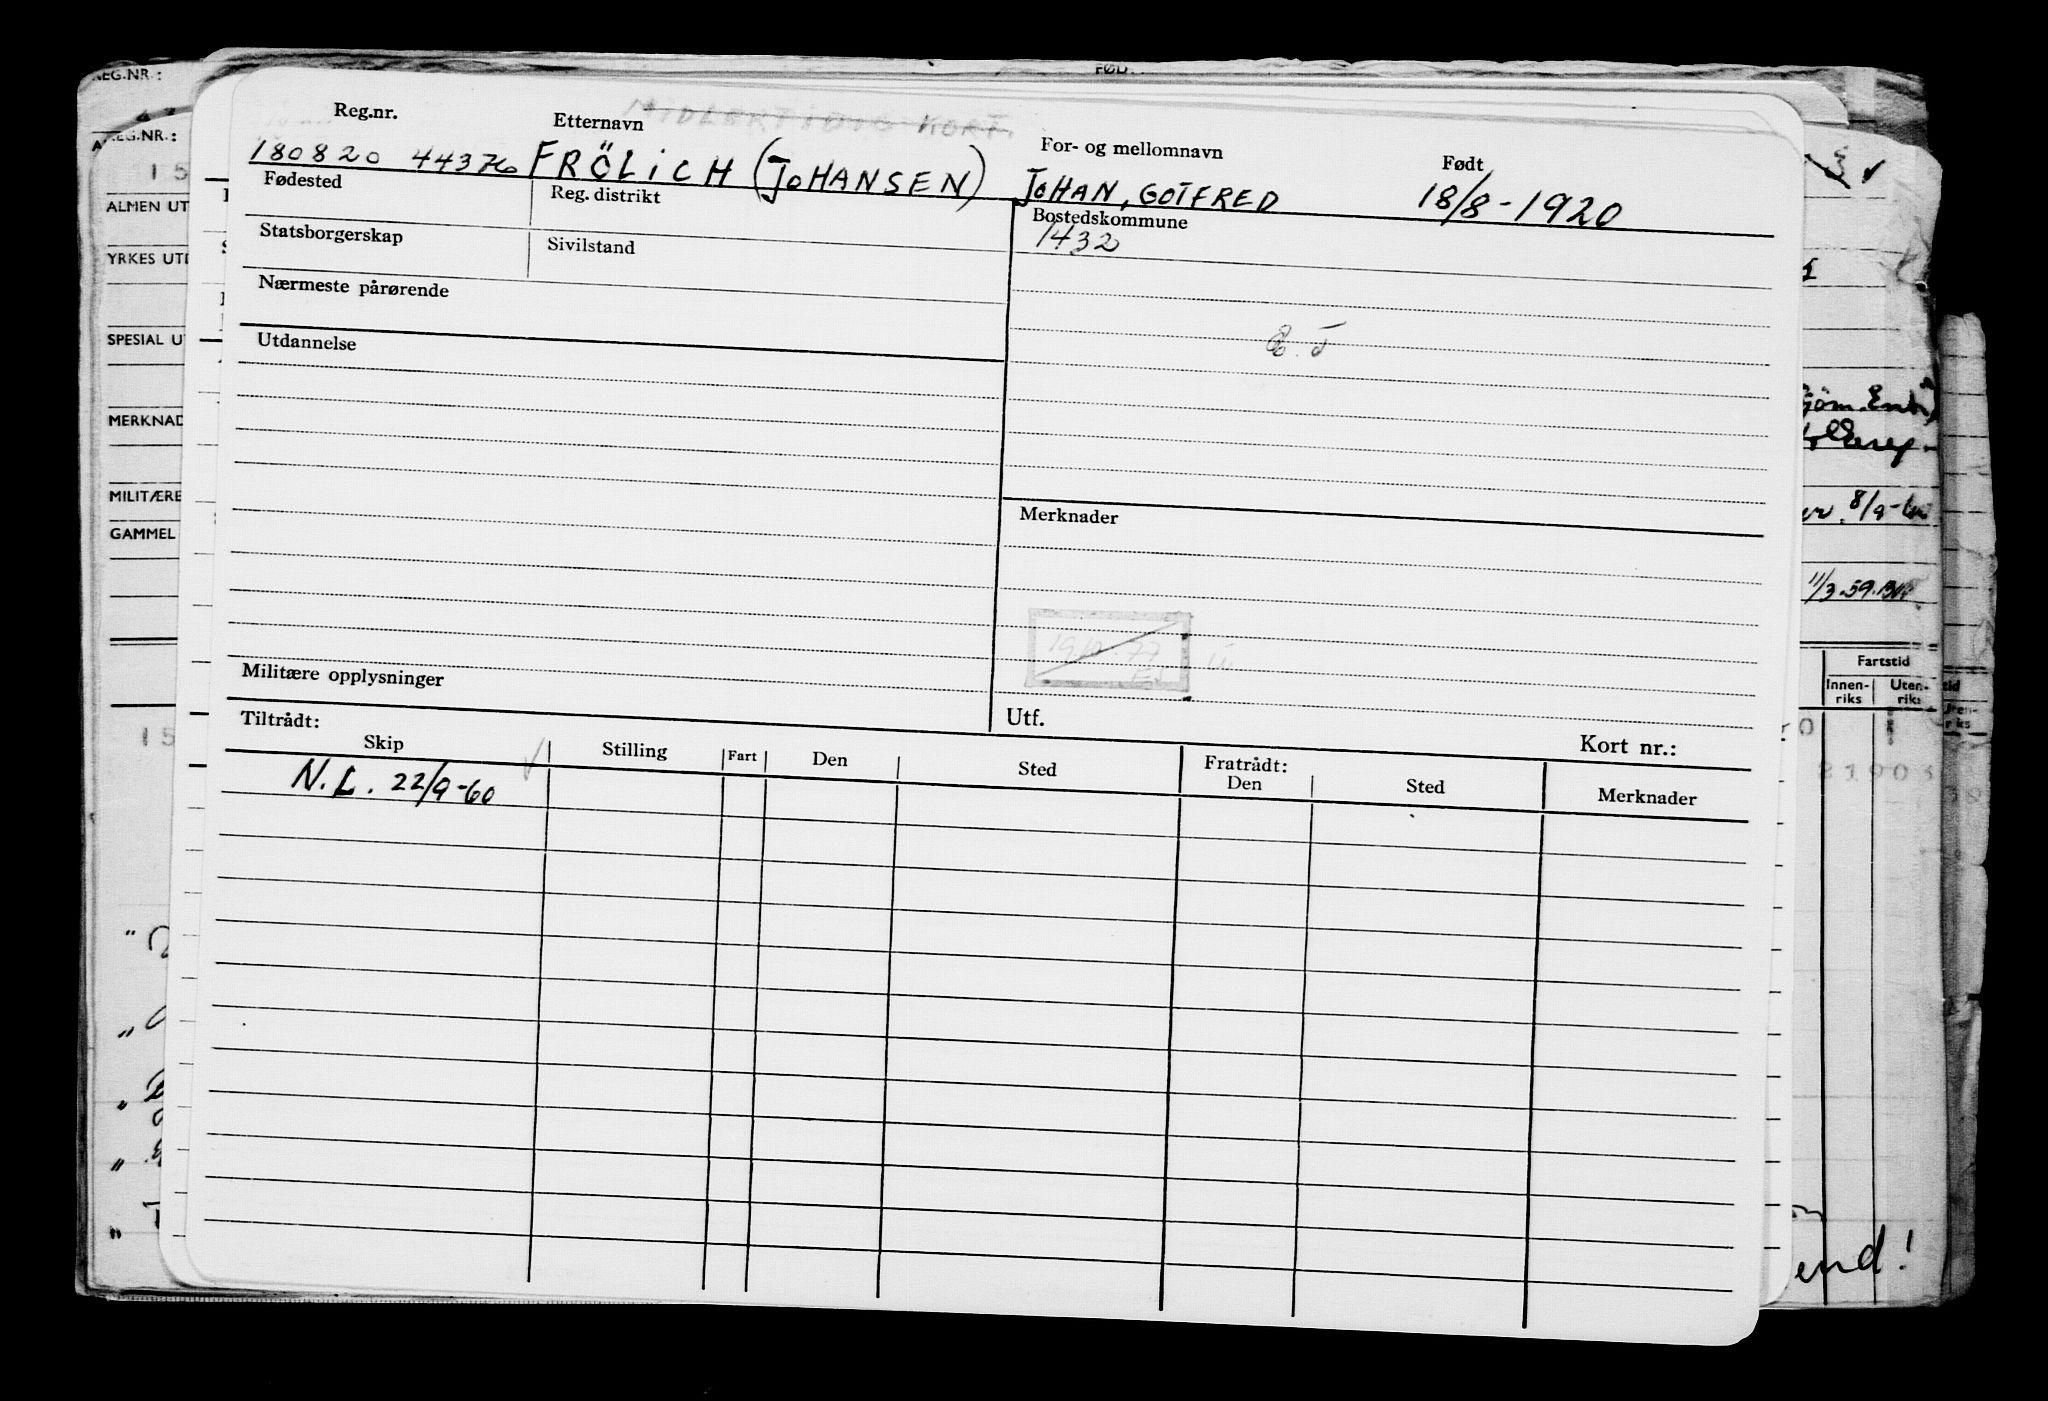 MIDLERTIDIG KORT.
Reg.nr. Etternavn For- og mellomnavn Født
180820 44376 FRÖLICH (JOHANSEN) JOHAN, GOTFRED 18/8-1920
Fødested Reg. distrikt Bostedskommune
1432
Statsborgerskap Sivilstand
Nærmeste pårørende
Utdannelse
Merknader
Militære opplysninger
Utf.
Tiltrådt: Kort nr.:
Skip Stilling Fart Den Sted Fratrådt: Den Sted Merknader
N.L. 22/9-60
REG.NR.:
FØD
REG.NR.:
15
ALMEN UT
YRKES UTD
SPESIAL UT
MERKNAD
MILITÆRE
GAMMEL
15
11/3.59.
Fartstid
Innen-riks Uten-riks
end!